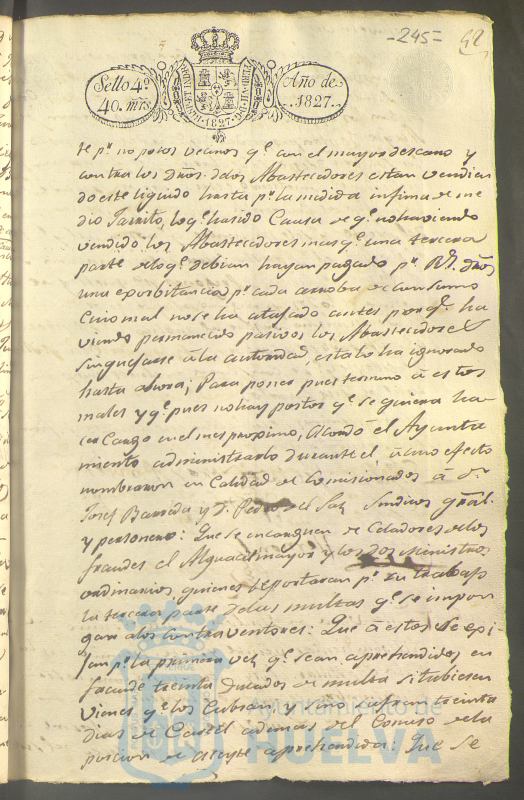 -245=
52
Sello 4º
40. mrs
HISPAN. ET IND. R. 1827. FERD. VII. D. G.
Año de
1827.
te pr. no pocos vecinos qe. con el mayor descaro y
contra los dros. delos Abastecedores estan vendien
do este liquido hasta pr. la medida infima de me
dio Jarrito, lo qe. ha sido Causa de qe. no haviendo
vendido los Abastecedores mas qe. una tercera
parte delo qe. debian hayan pagado pr. Rs. dros
una exorbitancia pr. cada arroba de consumo
Cuio mal no se ha atajado antes porqe. ha
viendo permanecido pasivos los Abastecedores
sin quejarse à la autoridad, esta lo ha ignorado
hasta ahora; Para poner pues termino à estos
males y qe. pues no hay postor qe. se quiera ha-
cer Cargo en el mes proximo, Acordó el Ayunta
miento administrarlo durante él à cuio efecto
nombraron en Calidad de Comisionados à Dn.
Josef Barreda y D. Pedro del Saz Sindicos gral.
y personero: Que se encarguen de Celadores delos
fraudes el Alguacil mayor y los dos Ministros
ordinarios, quienes reportaran pr. su trabajo
la tercera parte de las multas qe. se impon
gan alos Contraventores: Que à estos se exi
jan pr. la primera vez qe. sean aprehendidos en
fraude treinta ducados de multa si tubiesen
vienes qe. los Cubran y sino sufran treinta
dias de Carcel ademas del Comiso dela
porcion de aceyte aprehendida: Que se
Ayuntamiento de
HUELVA